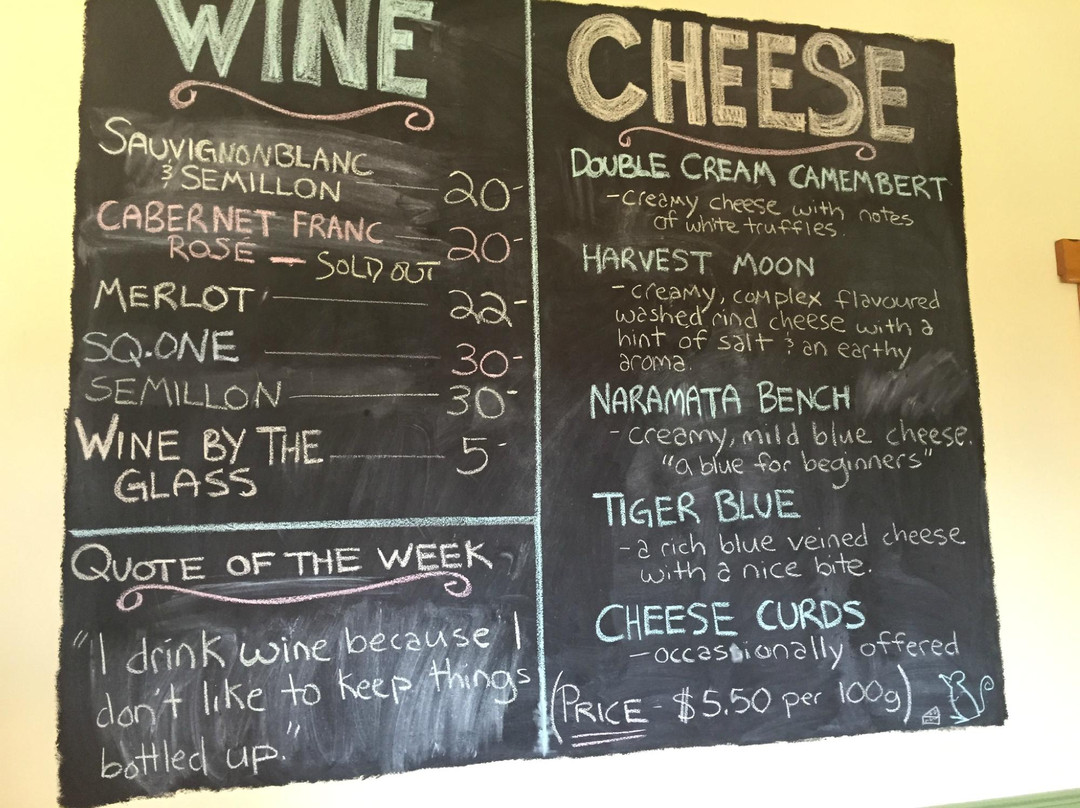 WINE
SAUVIGNON BLANC
& SEMILLON — 20-
CABERNET FRANC — 20-
ROSÉ — SOLD OUT
MERLOT — 22-
SQ.ONE — 30-
SEMILLON — 30-
WINE BY THE — 5-
GLASS
QUOTE OF THE WEEK
"I drink wine because I
don't like to keep things
bottled up."
CHEESE
DOUBLE CREAM CAMEMBERT
- creamy cheese with notes
of white truffles.
HARVEST MOON
- creamy, complex flavoured
washed rind cheese with a
hint of salt & an earthy
aroma.
NARAMATA BENCH
- creamy, mild blue cheese.
"a blue for beginners"
TIGER BLUE
- a rich blue veined cheese
with a nice bite.
CHEESE CURDS
- occassionally offered
(PRICE - $5.50 per 100g)